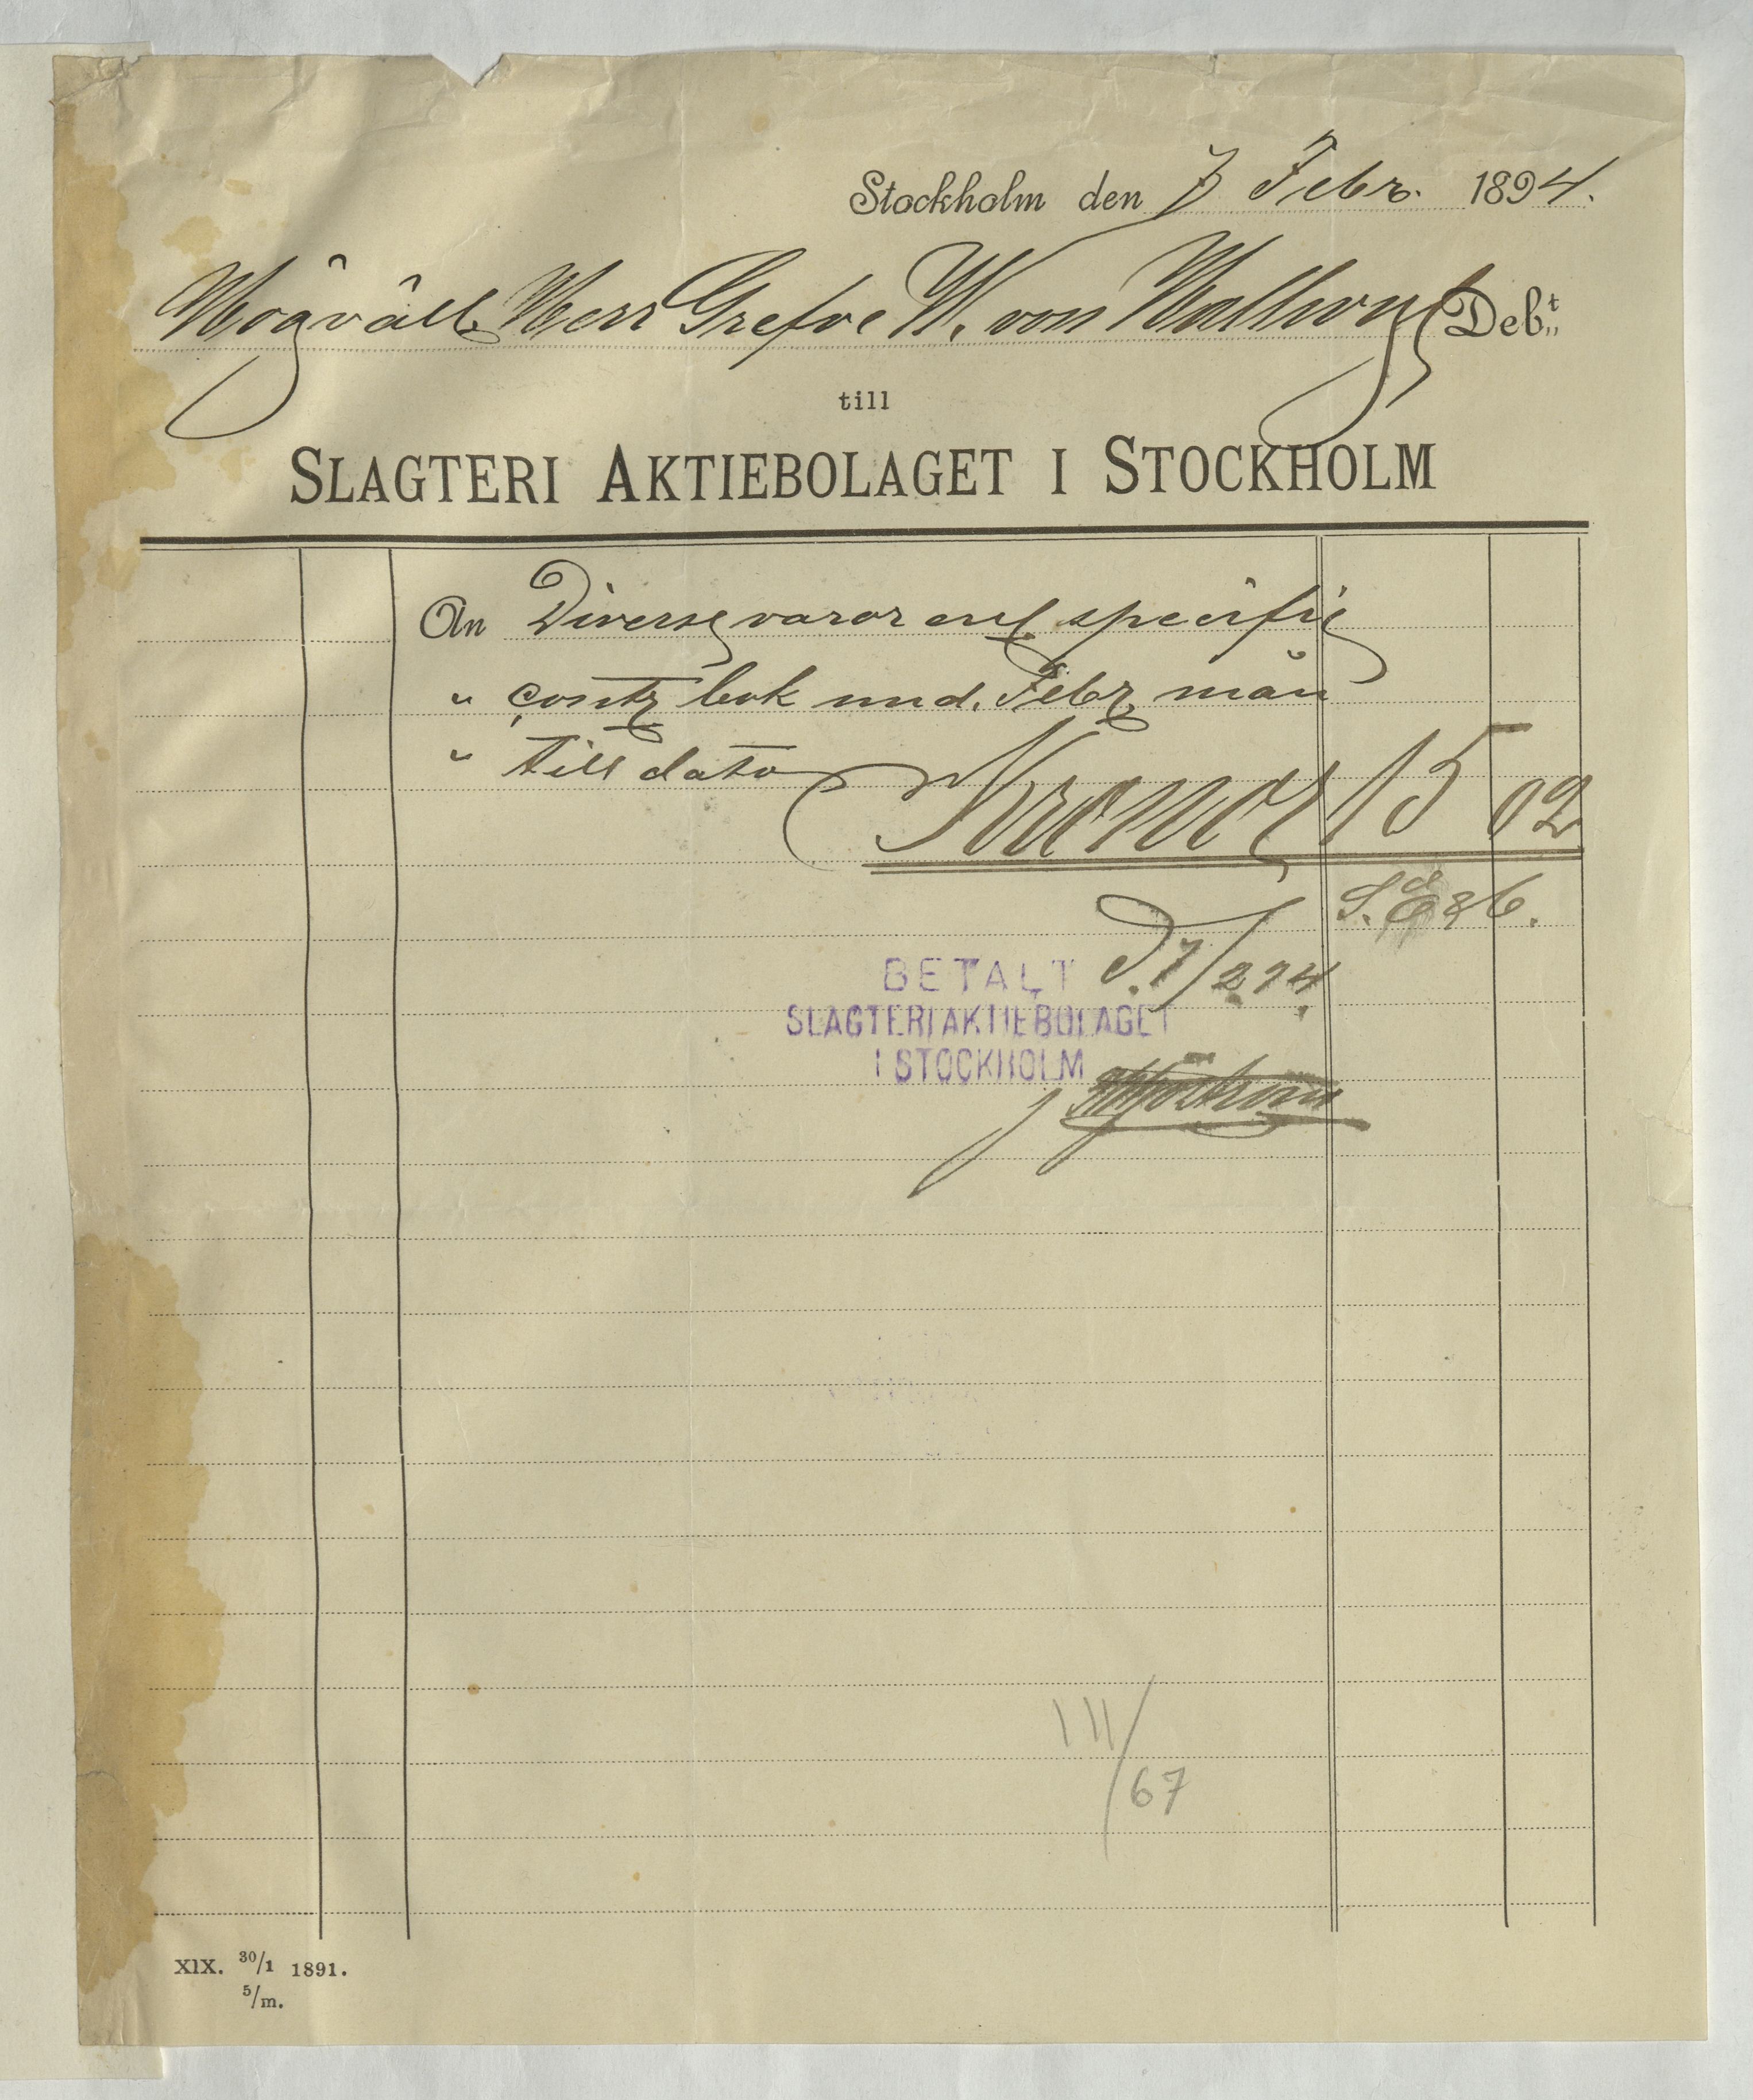 Stockholm den 7 Febr. 1894.
Högvälb. Herr Grefve W. von Hallwyl Deb:t
till
SLAGTERI AKTIEBOLAGET I STOCKHOLM
An Diverse varor enl specifik
" contr bok und. Febr. mån
" till dato
Kronor 15 02
S. E & O.
BETALT d. 7/2 94
SLAGTERIAKTIEBOLAGET
I STOCKHOLM
111/67
XIX. 30/1 1891.
5/m.